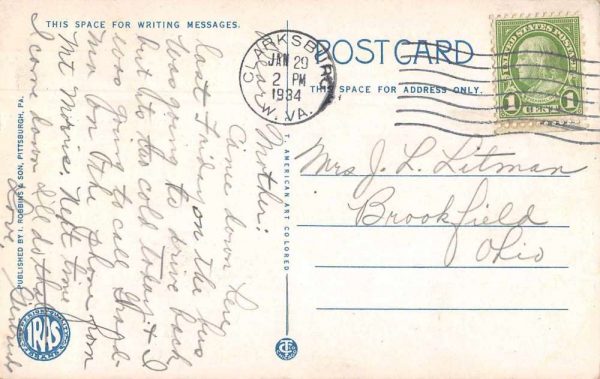 THIS SPACE FOR WRITING MESSAGES.
POST CARD
THIS SPACE FOR ADDRESS ONLY.
CLARKSBURG
JAN 29
2 PM
1934
W. VA.
UNITED STATES POSTAGE
1 CENT 1
Dear Mother:
Came down here
last Friday on the bus
was going to drive back
but its too cold today & I
was going to call
on the phone from
Mt Morris. Next time
I come down I'll do that
Love,
Mrs J. L. Litman
Brookfield
Ohio
C. T. AMERICAN ART COLORED
PUBLISHED BY I. ROBBINS & SON, PITTSBURGH, PA.
IRAS